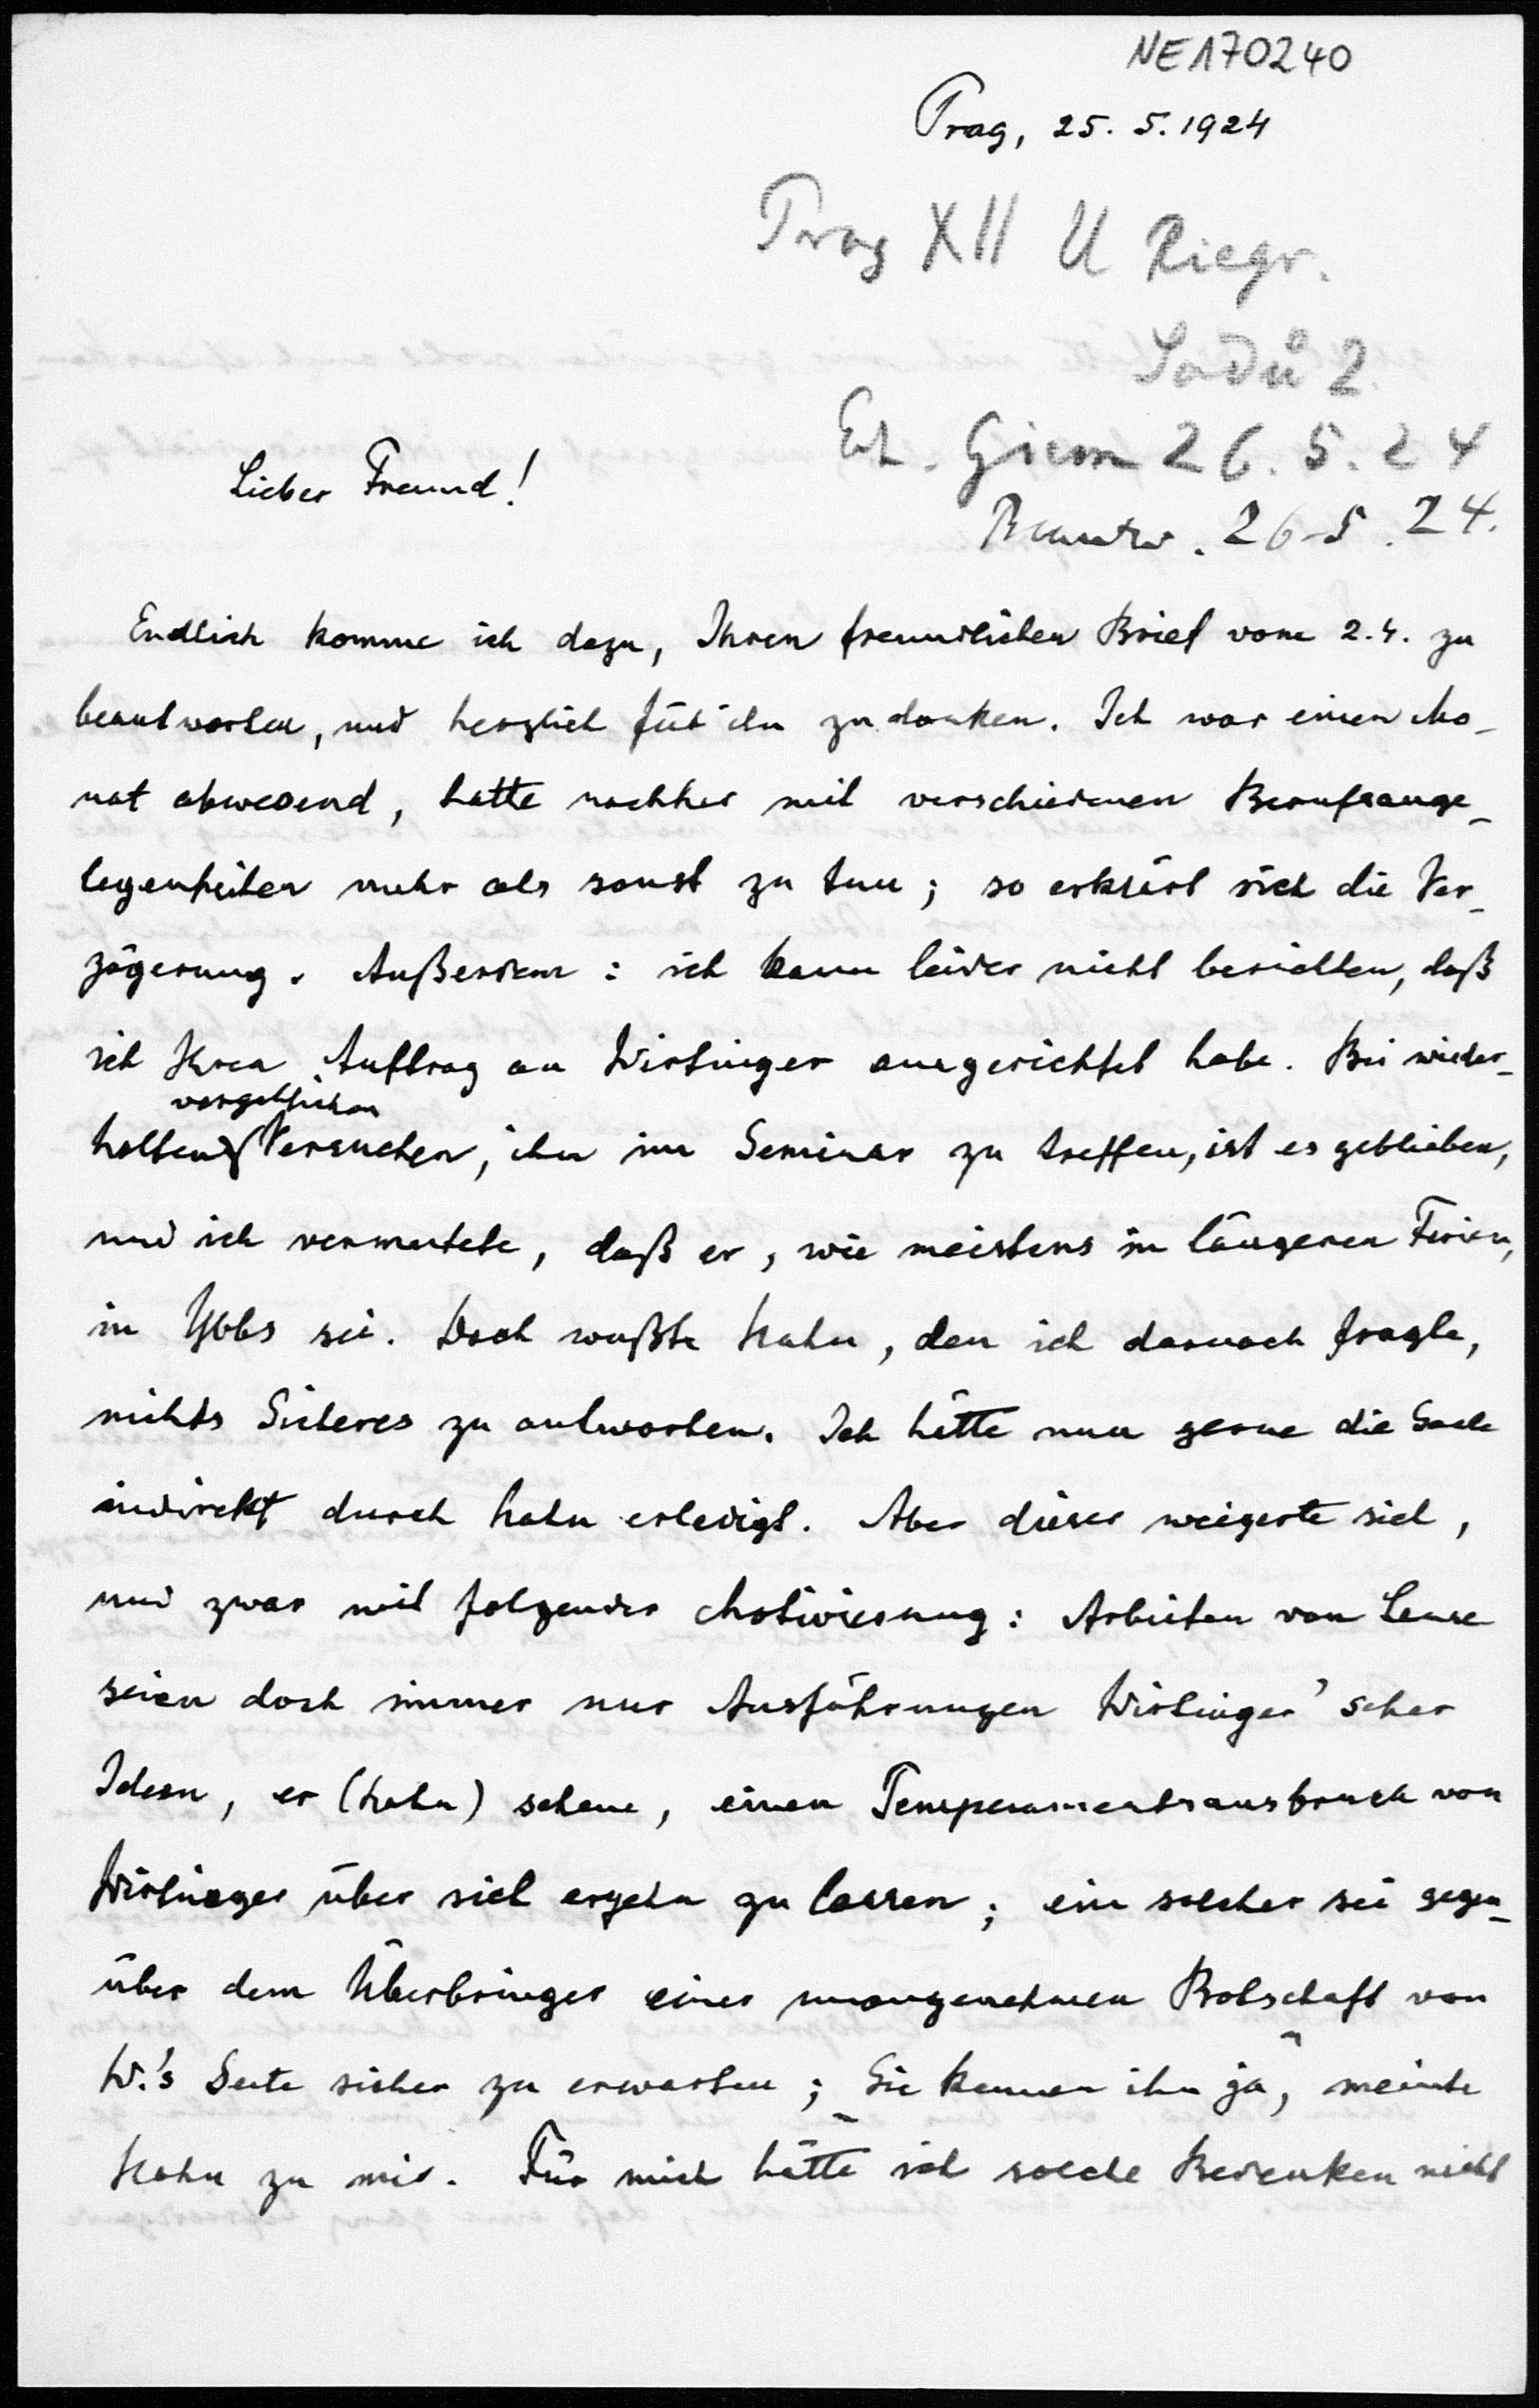 NE170240
Prag, 25. 5. 1924
Prag XII U Riegr.
Sadů 2.
Erh. Giem 26. 5. 24
Beantw. 26. 5. 24.
Lieber Freund!
Endlich komme ich dazu, Ihren freundlichen Brief vom 2.4. zu
beantworten, und herzlich für ihn zu danken. Ich war einen Mo-
nat abwesend, hatte nachher mit verschiedenen Berufsange-
legenheiten mehr als sonst zu tun; so erklärt sich die Ver-
zögerung. Außerdem: ich kann leider nicht berichten, daß
ich Ihren Auftrag an Wirtinger ausgerichtet habe. Bei wieder-
vergeblichen
holten Versuchen, ihn im Seminar zu treffen, ist es geblieben,
und ich vermutete, daß er, wie meistens in längeren Ferien,
in Ybbs sei. Doch wußte Hahn, den ich darnach fragte,
nichts Sicheres zu antworten. Ich hätte nun gerne die Sache
indirekt durch Hahn erledigt. Aber dieser weigerte sich,
und zwar mit folgender Motivierung: Arbeiten von Lense
seien doch immer nur Ausführungen Wirtinger'scher
Ideen, er (Hahn) scheue, einen Temperamentsausbruch von
Wirtinger über sich ergehn zu lassen; ein solcher sei gegen-
über dem Überbringer einer unangenehmen Botschaft von
W.'s Seite sicher zu erwarten; "Sie kennen ihn ja", meinte
Hahn zu mir. Für mich hätte ich solche Bedenken nicht